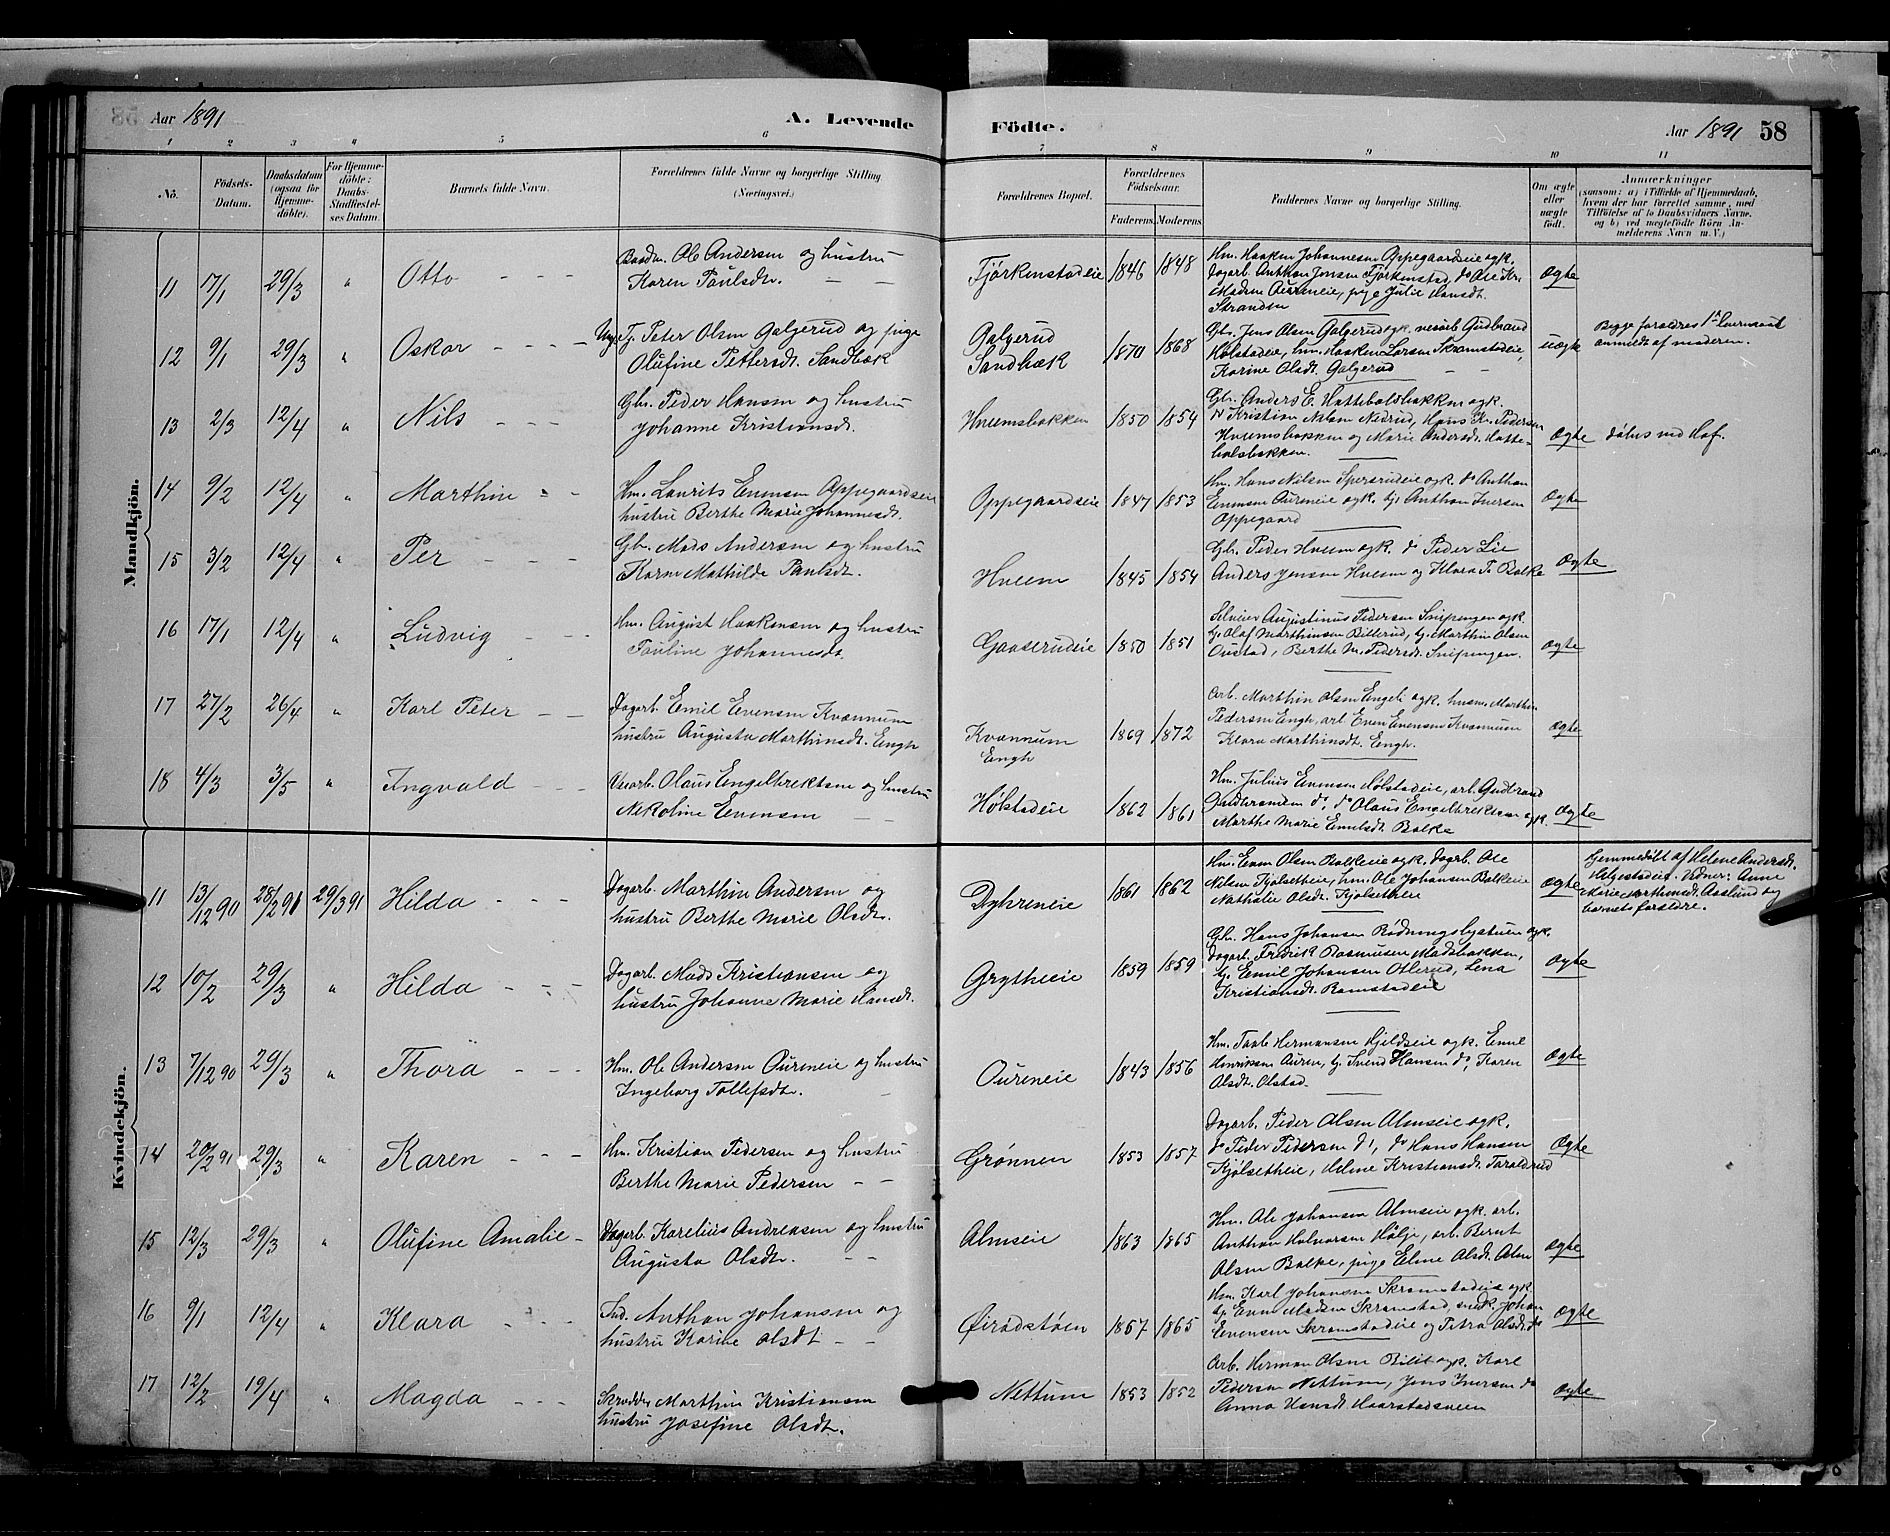 Aar 1891
A. Levende
Födte.
Aar 1891 58
1 2 3 4 5 6 7 8 9 10 11
No.
Födsels-Datum.
Daabsdatum (ogsaa för Hjemmedöbte).
For Hjemmedöbte: Daabs-Stadfæstelses Datum.
Barnets fulde Navn.
Forældrenes fulde Navne og borgerlige Stilling
(Næringsvei.)
Forældrenes Bopæl.
Forældrenes Födselsaar.
Faderens. Moderens.
Faddernes Navne og borgerlige Stilling.
Om ægte eller uægte födt.
Anmærkninger
(saasom: a) i Tilfælde af Hjemmedaab, hvem der har forrettet samme, med Tilföielse af to Daabsvidners Navne, og b) ved uægtefödte Börn Anmelderens Navn m. V.)
Mandkjön.
11 17/1 29/3 " Otto
Ole Andersen og hustru
Karen Paulsdt.
Fjörkenstadeie 1846 1848
Hm. Haaken Johannesen Oppegaardseie ogk.
Dagarb. Anthon Jensen Fjörkenstad, do Ole Kr.
Madsen Aureneie, pige Julie Hansdt.
Stranden
Ægte
12 9/1 29/3 " Oskar
Ung. Tj. Peter Olsen Galgerud og pige
Olufine Pettersdt. Sandbæk
Galgerud
Sandbæk
1870 1868
Gbr. Jens Olsen Galgerud ogk. Gudbrand
Hölstadeie, hm. Haaken Larsen Skramstadeie,
Karine Olsdt. Galgerud
uægte
Begge forældres 1ste Leiermaal
anmeldt af moderen.
13 2/3 12/4 " Nils
Gbr. Peder Hansen og hustru
Johanne Kristiansdt.
Hveemsbakken 1850 1854
Gbr. Anders E. Hattebolsbakken ogk.
Kristian Nilsen Nedrud, Hans Kr. Pedersen
Hveemsbakken og Marie Andersdt. Hattebolsbakken.
Ægte
döbt ved Hof.
14 9/2 12/4 " Marthin
Hm. Laurits Evensen Oppegaardseie
hustru Berthe Marie Johannesdt.
Oppegaardseie 1847 1853
Hm. Hans Nilsen Sperrudeie ogk. do Anthon
Evensen Aureneie ogk. tj. Anthon Iversen
Oppegaard
Ægte
15 3/2 12/4 " Per
Gbr. Mads Andersen og hustru
Karen Mathilde Paulsdt.
Hveem 1845 1854
Gbr. Peder Hveem ogk. do Peder Lie
Anders Jensen Hveem og Klara P. Balke
Ægte
16 17/1 12/4 " Ludvig
Hm. August Haakensen og hustru
Pauline Johannesdt.
Gaaserudeie 1850 1851
Augustinus Pedersen Snipengen ogk.
tj. Olaf Marthinsen Billerud, tj. Marthin Olsen
Oustad, Berthe M. Pedersdt. Snipengen.
ægte
17 27/2 26/4 " Karl Peter
Dagarb. Emil Evensen Kvænnum
hustru Augusta Marthinsdt. Engh
Kvænnum
Engh
1869 1872
Arb. Marthin Olsen Engh ogk. husm. Marthin
Pedersen Engh, arb. Even Evensen Kvænnum
Klara Marthinsdt. Engh.
ægte
18 4/3 3/5 " Ingvald
Olaus Engelbrektsen og hustru
Nikoline Evensen
Hölstadeie 1862 1861
Hm. Julius Evensen Hölstadeie, arb. Gudbrand
Gudbrandsen do, do Olaus Engelbrektsen ogk.
Marthe Marie Emilsdt. Balke
ægte
Kvindekjön.
11 13/12 90 28/2 91 29/3 91 Hilda
Dagarb. Marthin Andersen og
hustru Berthe Marie Olsdt.
Dyhreneie 1861 1862
Hm. Even Olsen Balkeeie ogk. Dagarb. Ole
Nilsen Kjölsetheie, hm. Ole Johansen Balkeeie
Nathalie Olsdt. Kjölsetheie
Ægte
Hjemmedöbt af Helene Andersdt.
Helgestadeie. Vidner: Anne
Marie Marthinsdt. Aaslund og
barnets forældre.
12 10/2 29/3 " Hilda
Dagarb. Mads Kristiansen og
hustru Johanne Marie Hansdt.
Grytheeie 1859 1859
Gbr. Hans Johansen Rödningsbystuen ogk.
Dagarb. Fredrik Rasmussen Madsbakken,
tj. Emil Johansen Otterud, Lena
Kristiansdt. Ramstadeie
Ægte
13 7/12 90 29/3 " Thora
Hm. Ole Andersen Oureneie og hustru
Ingeborg Tollefsdt.
Oureneie 1843 1856
Hm. Hermansen Hjeldseie ogk. Emil
Henriksen Auren, tj. Svend Hansen do, Karen
Olsdt. Olstad.
Ægte
14 20/2 91 29/3 " Karen
Hm. Kristian Pedersen og hustru
Berthe Marie Pedersen
Grønnen 1853 1857
Dagarb. Peder Olsen Almseie ogk.
do Peder Pedersen do, do Hans Hansen
Kjölsetheie, Helene Kristiansdt. Taralderud
Ægte
15 12/3 29/3 " Olufine Amalie
Dagarb. Karelius Andreasen og hustru
Augusta Olsdt.
Almseie 1863 1865
Hm. Ole Johansen Almseie ogk. arb.
Anthon Halvorsen Hölje, arb. Bernt
Olsen Balke, pige Elene Olsdt. Alm
Ægte
16 9/1 12/4 " Klara
Ind. Anthon Johansen og
hustru Karine Olsdt
Øiradstøen 1857 1865
Hm. Karl Johansen Skramstadeie ogk.
tj. Even Madsen Skramstad, Johan
Evensen Skramstadeie og Petra Olsdt. do
Ægte
17 12/2 19/4 " Magda
Skrædder Marthin Kristiansen
hustru Josefine Olsdt.
Nettum 1853 1852
Arb. Herman Olsen Bilit ogk. Karl
Pedersen Nettum, Jens Iversen do
Anna Hansdt. Haarstadsveen
Ægte